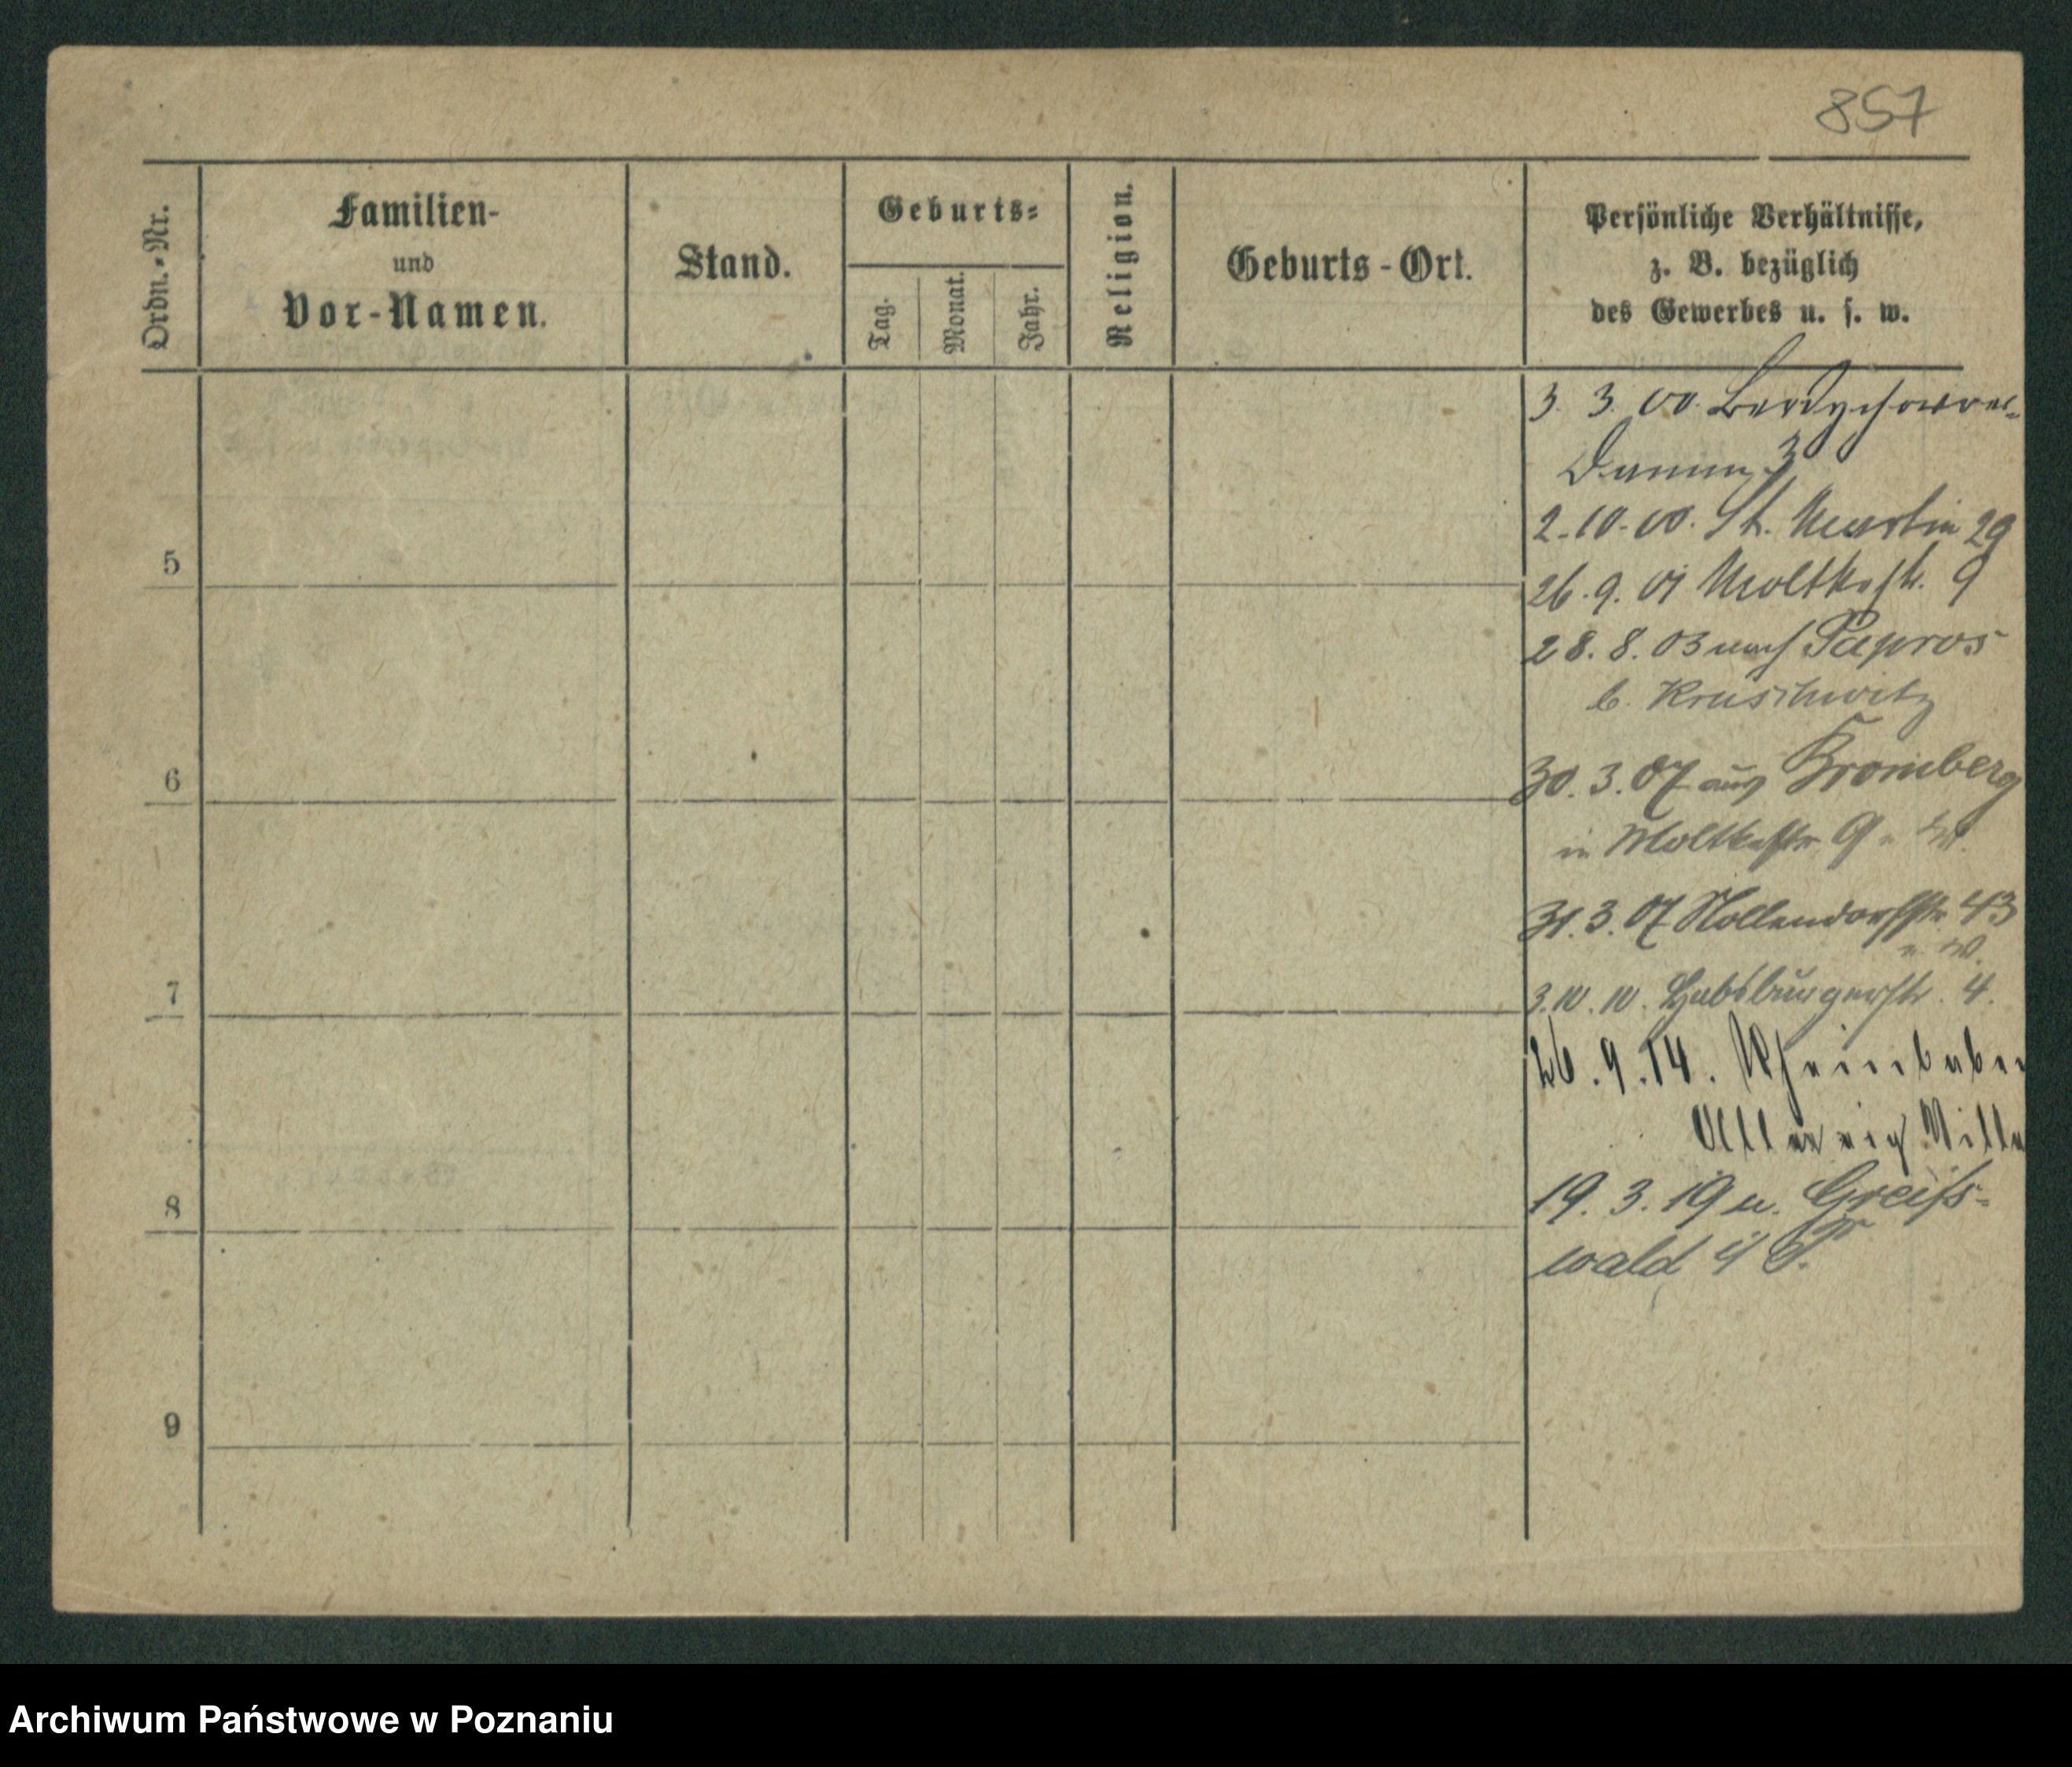 857
Ordn.-Nr.
Familien-
und
Vor-Namen.
Stand.
Geburts-
Tag.
Monat.
Jahr.
Religion.
Geburts-Ort.
Persönliche Verhältnisse,
z. B. bezüglich
des Gewerbes u. s. w.
3. 3. 00. Berdychower-
Damm 3
2.10.00. St. Martin 29
5
26.9.01 Moltkestr. 9
28.8.03 nach Papros
b. Kruschwitz
6
30.3.07 aus Bromberg
in Moltkestr 9.
31.3.07 Nollendorfstr 43
7
3.10.10. Habsburgerstr. 4.
26.9.14. Rheinbaben
Allee Villa
8
19.3.19 n. Greifs-
wald i/P.
9
Archiwum Państwowe w Poznaniu